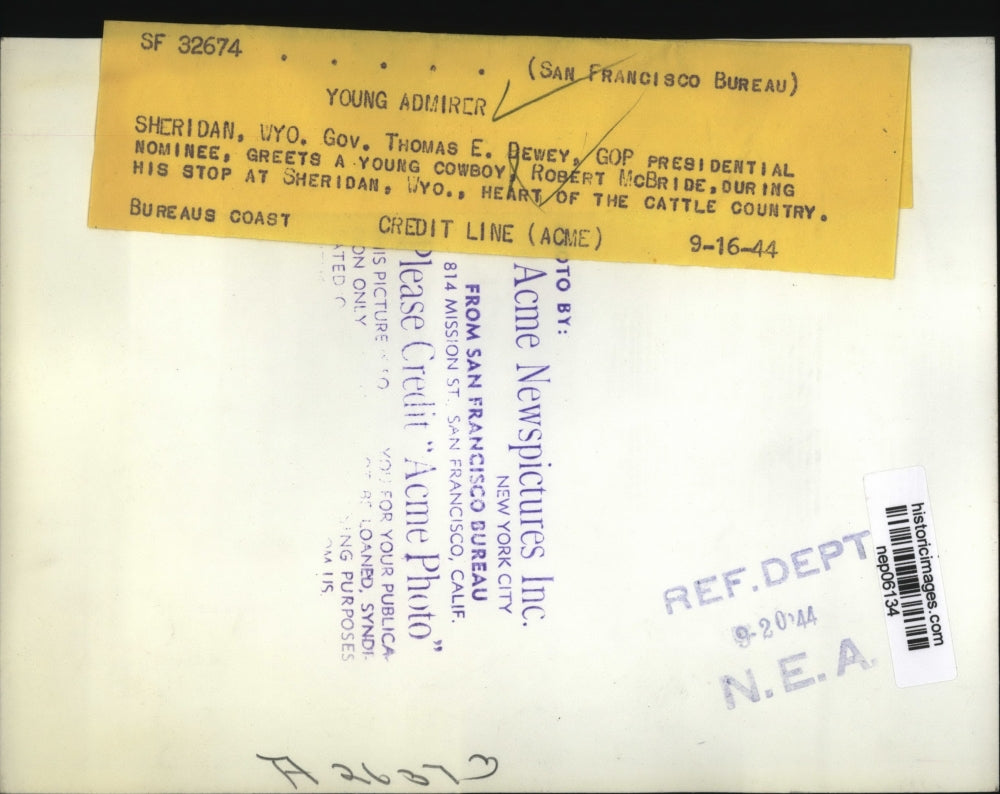 SF 32674 . . . . . (SAN FRANCISCO BUREAU)
YOUNG ADMIRER
SHERIDAN, WYO. GOV. THOMAS E. DEWEY, GOP PRESIDENTIAL
NOMINEE, GREETS A YOUNG COWBOY, ROBERT MCBRIDE, DURING
HIS STOP AT SHERIDAN, WYO., HEART OF THE CATTLE COUNTRY.
BUREAUS COAST CREDIT LINE (ACME) 9-16-44
OTO BY:
Acme Newspictures Inc.
NEW YORK CITY
FROM SAN FRANCISCO BUREAU
814 MISSION ST. SAN FRANCISCO, CALIF.
Please Credit "Acme Photo"
IS PICTURE YOU FOR YOUR PUBLICA-
ON ONLY BE LOANED, SYNDI-
ATED ING PURPOSES
OM US.
REF. DEPT
9-20-44
N.E.A.
historicimages.com
nep06134